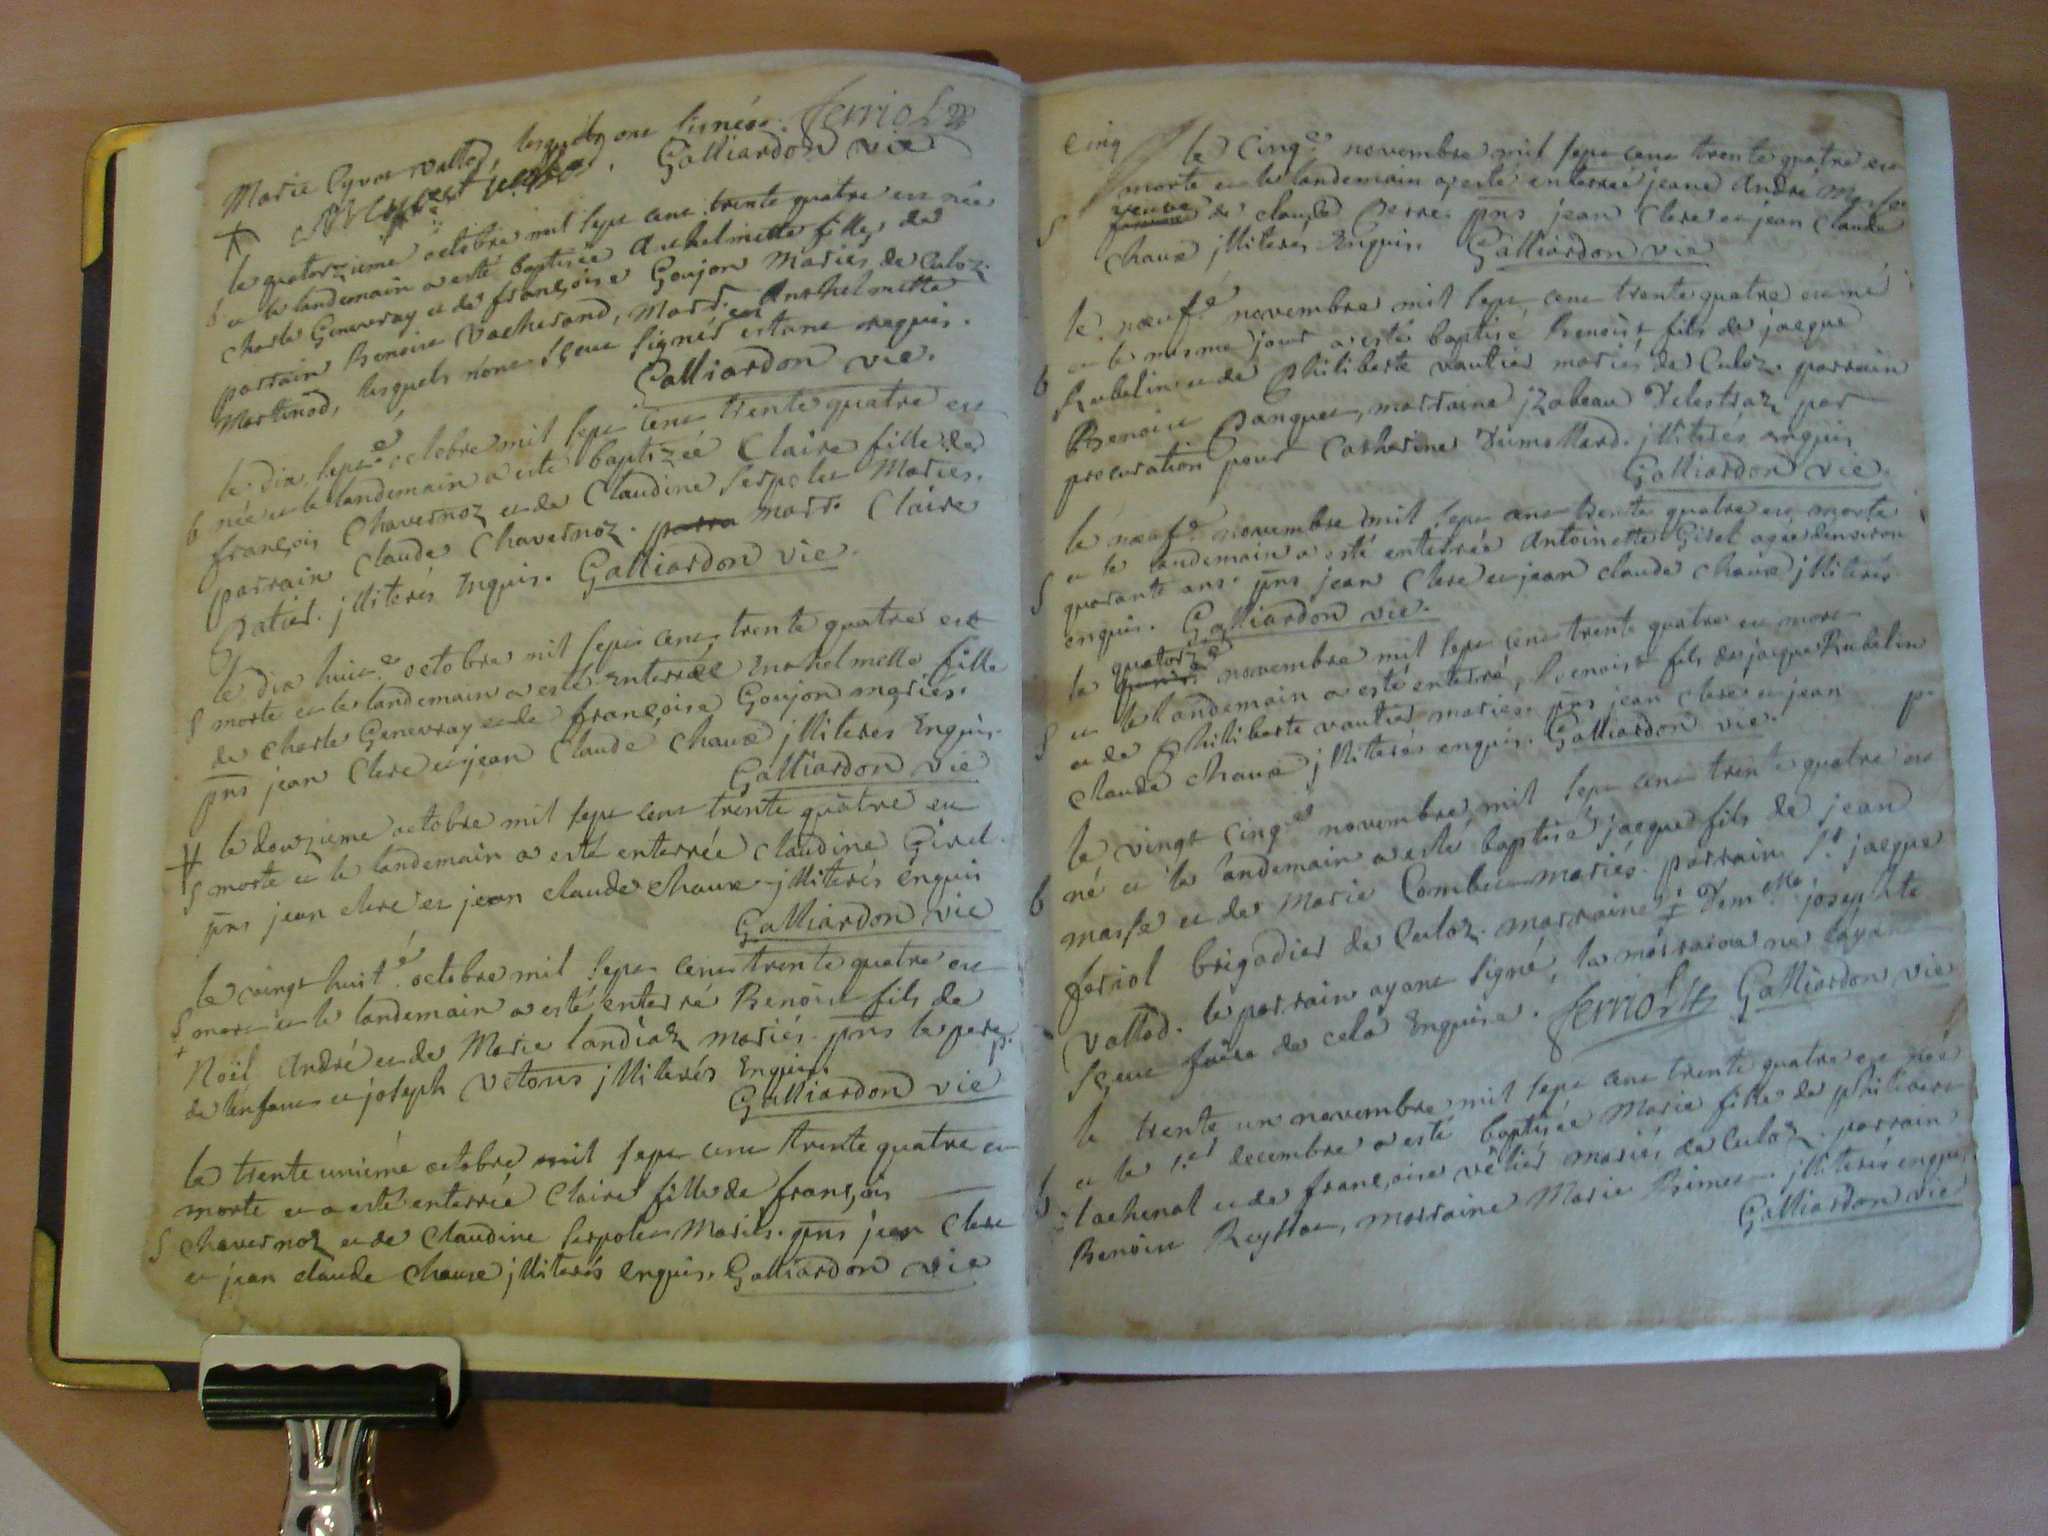 Marie Cyvot vallod, lesquels ont signés. ferriol
Galliardon vie
le quatorzieme octobre mil sept cent trente quatre est née
b et le landemain a esté baptisée Anthelmette fille de
Charle Genevray et de françoise Goujon Mariés de Culoz.
parrain Benoist Vacherand, Marr. est Anthelmette
Martinod, lesquels n'ont sçeut signés estant requis.
Galliardon vie.
le dix sept.e octobre mil sept cent trente quatre est
b née et le landemain a esté baptizée Claire fille de
françois Chavernoz et de Claudine serpolet Mariés.
parrain Claude Chavernoz. parra marr. Claire
Patier. jlliterés Enquis. Galliardon vie.
le dix huit.e octobre mil sept cent trente quatre est
S morte et le landemain a esté Enterrée Enthelmette fille
de Charle Genevray et de françoise Goujon mariés.
pns jean Clerc et jean Claude Chaux jlliteres Enquis.
Galliardon vie
le douzieme octobre mil sept cent trente quatre est
S morte et le landemain a esté enterrée Claudine Girel.
pns jean clerc et jean claude chaux jlliterés énquis
Galliardon vie
le vingt huit.e octobre mil sept cent trente quatre est
S mort et le landemain a esté enterré Benoist fils de
Noël André et de Marie landraz mariés. pns le pere p.
de lenfant et joseph Vetons jlliterés Enquis.
Galliardon vie
le trente uniéme octobre mil sept cent trente quatre est
morte et a esté enterrée Claire fille de françois
S chavernoz et de Claudine serpolet Mariés. pns jean Clerc
et jean claude chaux jlliterés enquis. Galliardon vie
cinq le cinq.e novembre mil sept cent trente quatre est
morte et le landemain a esté enterreé jeane André
S veuve de claude Perre. pns jean Clerc et jean Claude
chaux jlliterés Enquis. Galliardon vie
le nœuf.e novembre mil sept cent trente quatre est né
et le mesme jour a esté baptisé Benoist fils de jacque
b Rubelin et de Philiberte vautier mariés de Culoz. parrain
Benoist Panquet, marraine jzabeau Delestraz par
procuration pour Catherine Dumollard. jlliterés enquis
Galliardon vie.
le nœuf.e novembre mil sept cent trente quatre est morte
et le landemain a esté enterrée Antoinette Girel agée denviron
S quarante ans. pns jean Clerc et jean claude chaux jlliterés
enquis. Galliardon vie.
quatorz.e
le novembre mil sept cent trente quatre est mort
et le landemain a esté enterré, Benoist fils de jacque Rubelin
S et de Philiberte vautier mariés. pns jean clerc et jean p.
claude chaux jlliterés enquis. Galliardon vie.
le vingt cinq.e novembre mil sept cent trente quatre est
né et le landemain a esté baptisé jacque fils de jean
b masse et de Marie Combet mariés. parrain Sr jacque
feriol brigadier de Culoz. marraine Demlle josephte
Vallod. le parrain ayant signé, la marraine ne layant
sçeut faire de cela Enquise. ferriol Galliardon vie
le trente un novembre mil sept cent trente quatre est née
et le 1er decembre a esté baptisée Marie fille de philibert
b lachenal et de françoise vétier mariés de Culoz. parrain
Benoist Reystat, marraine Marie Bimet. jlliterés enquis.
Galliardon vie